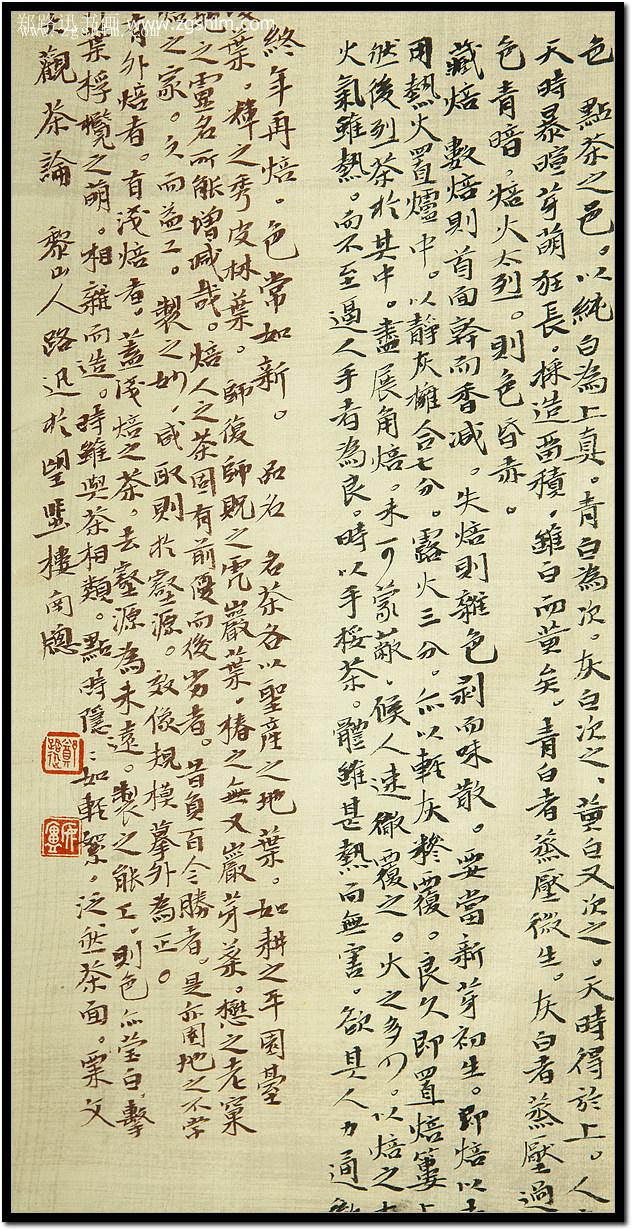 郑路迅书画 www.zgshlm.com
色 點茶之色。以純白為上真。青白為次。灰白次之、黃白又次之。天時得於上。人
天時暴暄芽萌狂長。採造畱積，雖白而黃矣。青白者蒸壓微生。灰白者蒸壓過
色青暗。焙火太烈。則色昏赤。
藏焙 數焙則首面幹而香減。失焙則雜色剥而味散。要當新芽初生。即焙以去
用熱火置爐中。以靜灰擁合七分。露火三分。亦以輕灰糝覆。良久即置焙簍上
然後列茶於其中。盡展角焙。未可蒙蔽，候人速徹覆之。火之多少。以焙之
火氣雖熱。而不至逼人手者為良。時以手挼茶。體雖甚熱而無害。欲其人力通徹
終年再焙。色常如新。 品名 名茶各以聖產之地葉。如耕之平園臺
葉。輝之秀皮林葉。師復師貺之虎巖葉，椿之無又巖芽葉。懋之老窠
之靈名所能增減哉。焙人之茶固有前優而後劣者。昔負百今勝者。是亦園地之不常
之家。久而益工。製之妙，咸取則於壑源。效像規模摹外為正。
有外焙者。有淺焙者。蓋淺焙之茶。去壑源為未遠。製之能工，則色亦莹白，擊
葉桴欖之萌。相雜而造。時雖與茶相類。點時隱〻如輕絮。泛然茶面。粟文
觀茶論 黎山人路迅於望樓南牕